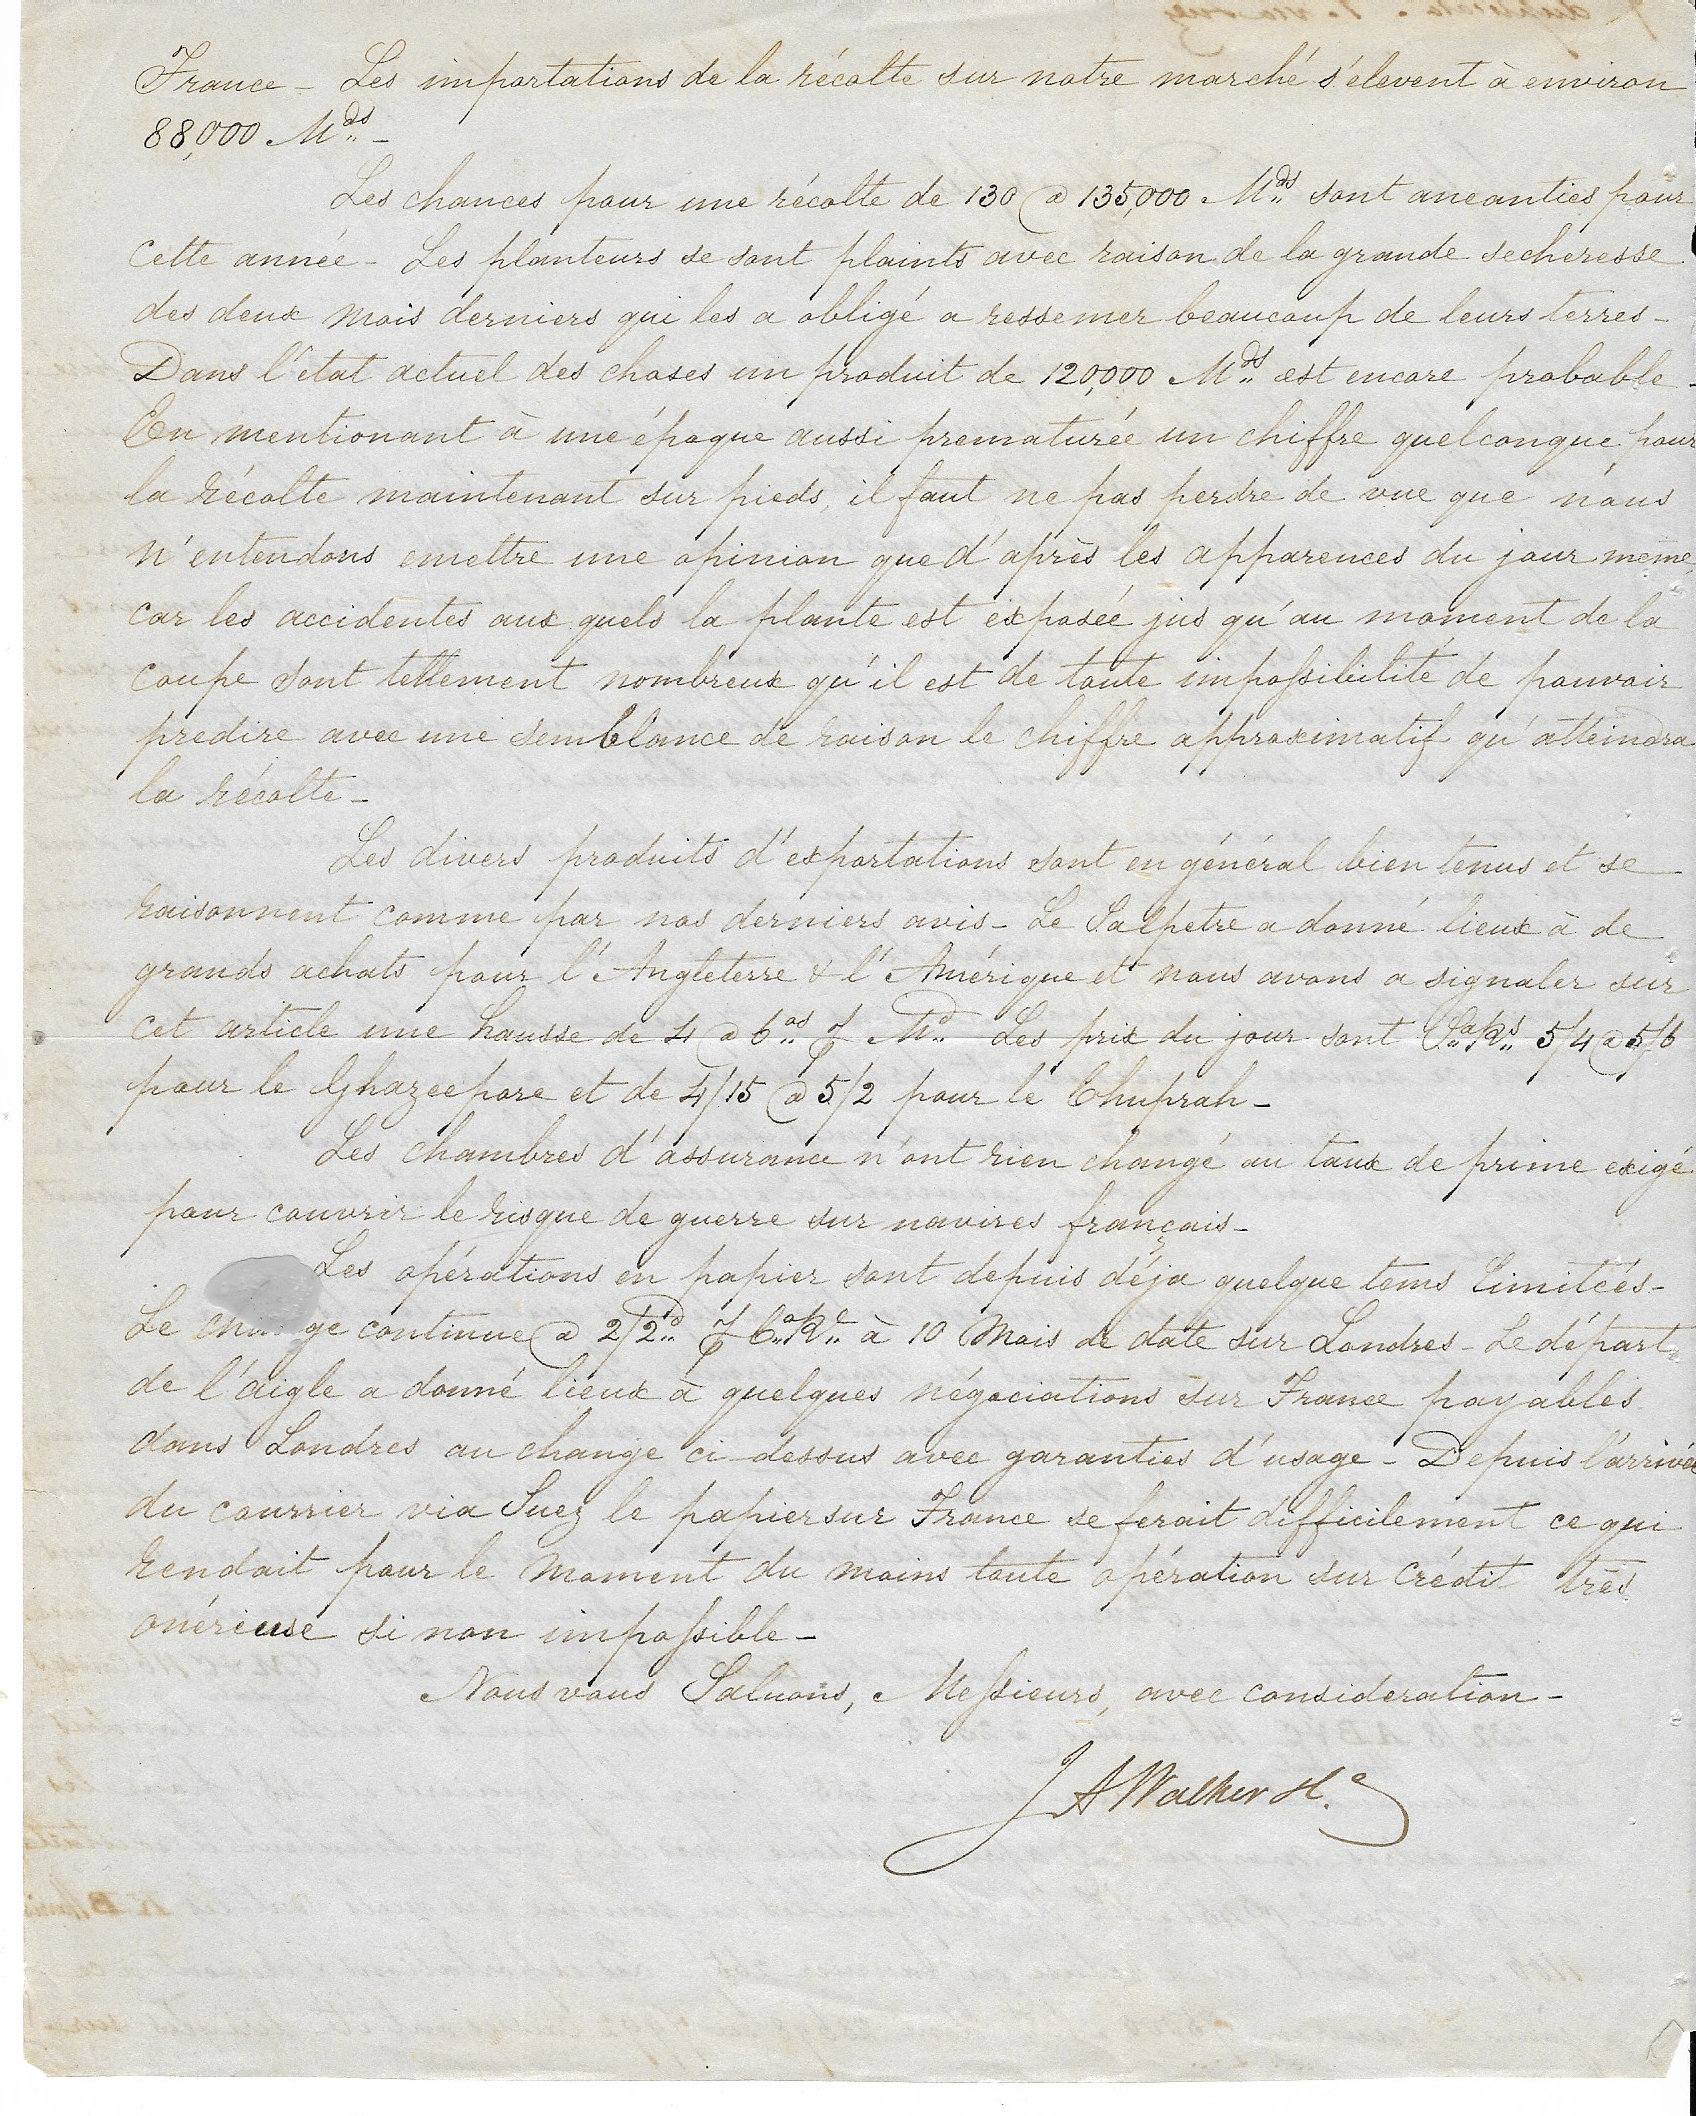 France – Les importations de la récolte sur notre marché s'élevent à environ
88,000 Mds –
Les chances pour une récolte de 130 @ 135,000 Mds sont aneanties pour
cette année – Les planteurs se sont plaints avec raison de la grande secheresse
des deux mois derniers qui les a obligé a ressemer beaucoup de leurs terres –
Dans l'état actuel des choses un produit de 120,000 Mds est encore probable –
En mentionant à une époque aussi prematurée un chiffre quelconque pour
la récolte maintenant sur pieds, il faut ne pas perdre de vue que nous
n'entendons emettre une opinion que d'après les apparences du jour meme,
car les accidentes aux quels la plante est exposée jus qu'au moment de la
coupe sont tellement nombreux qu'il est de toute impossibilité de pouvoir
predire avec une semblance de raison le chiffre approximatif qu'atteindra
la récolte –
Les divers produits d'exportations sont en général bien tenus et se
raisonnent comme par nos derniers avis – Le Salpetre a donné lieux à de
grands achats pour l'Angleterre & l'Amérique et nous avons a signaler sur
cet article une hausse de 4 @ 6 as ⅌ Md Les prix du jour sont Sa Rs 5/4 @ 5/6
pour le Ghazeepore et de 4/15 @ 5/2 pour le Chuprah –
Les chambres d'assurance n'ont rien changé au taux de prime exigé
pour couvrir le risque de guerre sur navires français –
Les opérations en papier sont depuis déja quelque tems limitées –
Le change continue @ 2/2d ⅌ Co Re à 10 Mois de date sur Londres – Le départ
de l'aigle a donné lieux à quelques négociations sur France payables
dans Londres au change ci-dessus avec garanties d'usage – Depuis l'arrivée
du courrier via Suez le papier sur France se ferait difficilement ce qui
rendait pour le moment du moins toute opération sur crédit très
onéreuse si non impossible –
Nous vous Saluons, Messieurs, avec consideration –
J A Walker